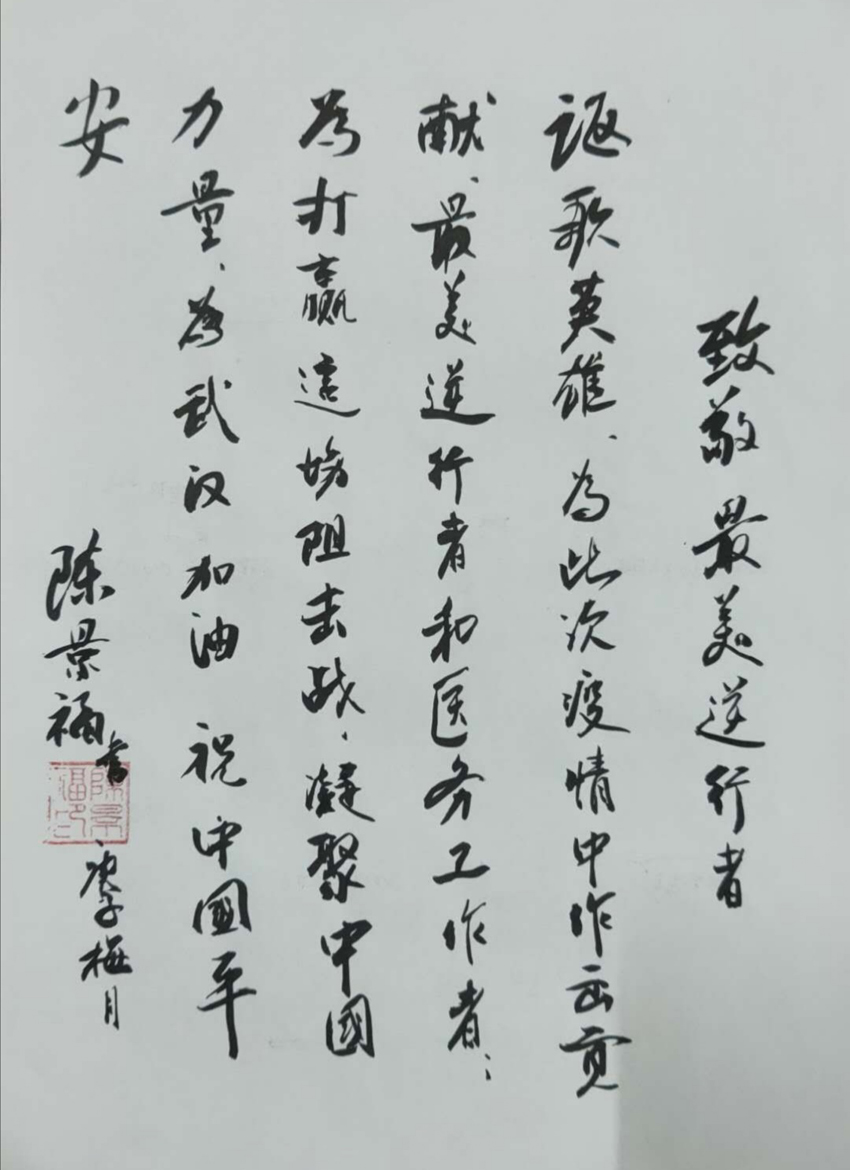 致敬最美逆行者
讴歌英雄、为此次疫情中作出贡
献、最美逆行者和医务工作者；
为打赢这场阻击战，凝聚中国
力量、为武汉加油 祝中國平
安
陈景福书
陈景福印
庚子梅月